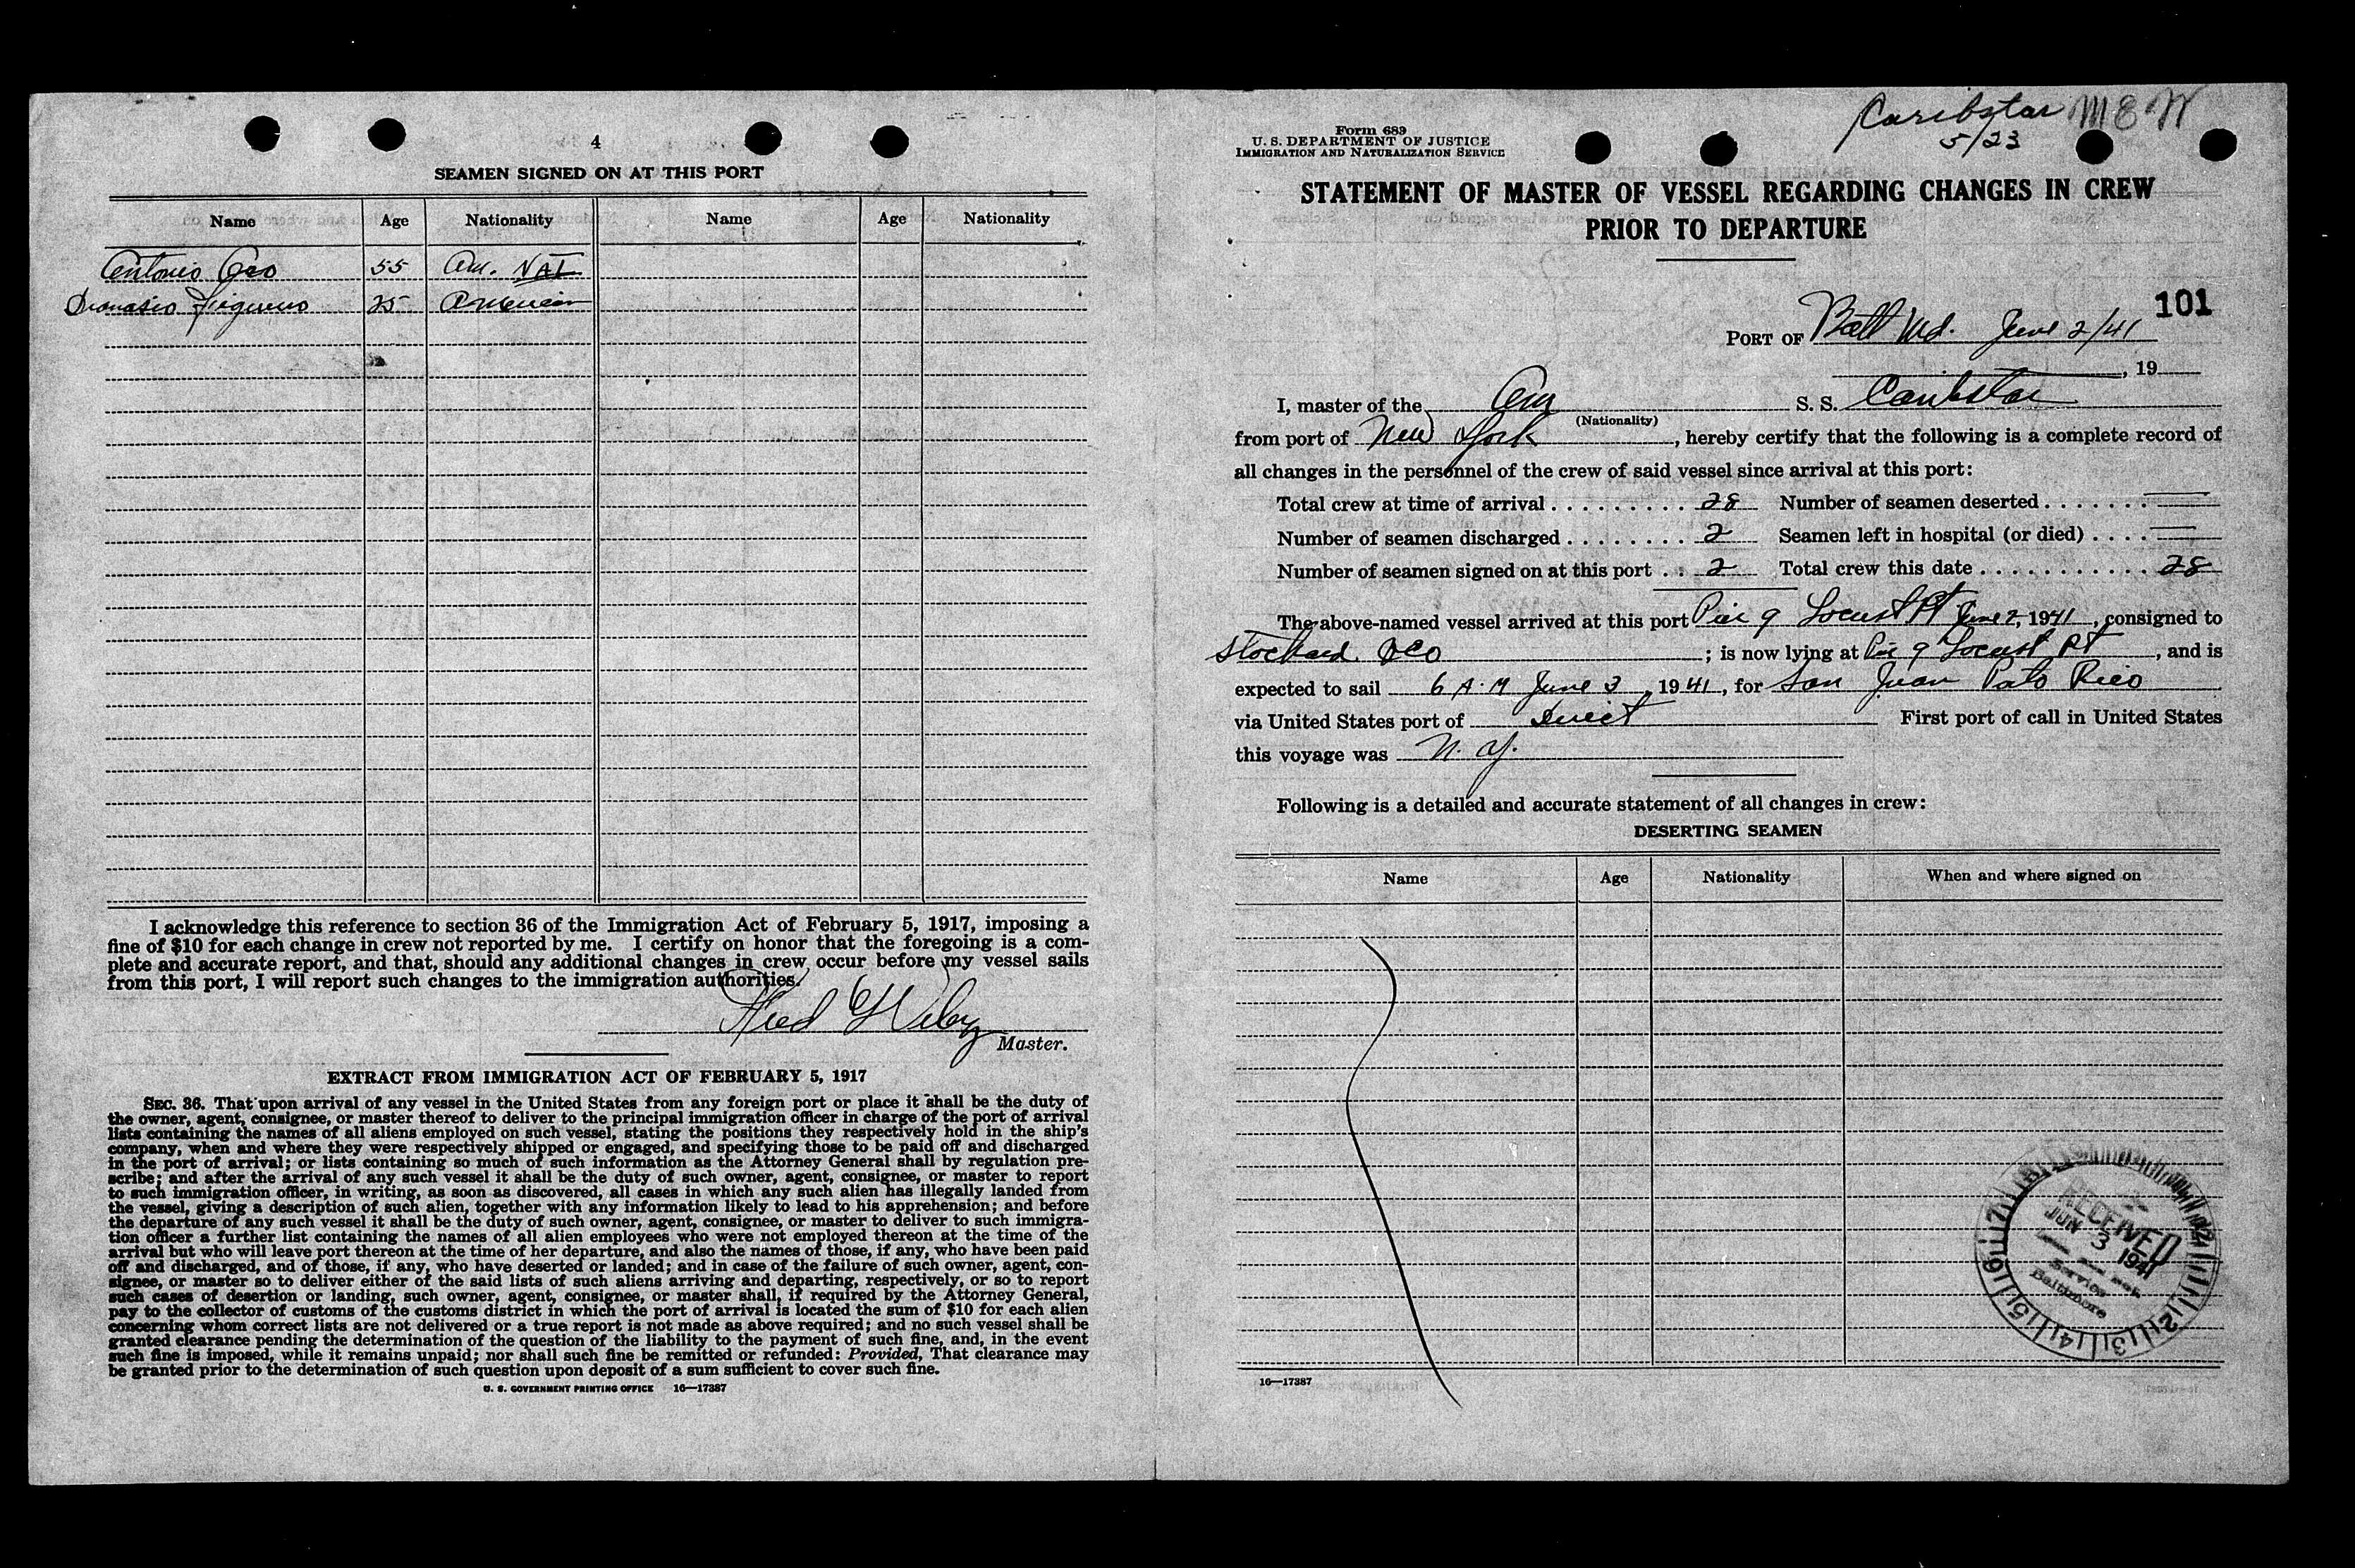 4
SEAMEN SIGNED ON AT THIS PORT
Name Age Nationality Name Age Nationality
Antonio Geo 55 Am. NAT
Figueroa 25 American
I acknowledge this reference to section 36 of the Immigration Act of February 5, 1917, imposing a
fine of $10 for each change in crew not reported by me. I certify on honor that the foregoing is a com-
plete and accurate report, and that, should any additional changes in crew occur before my vessel sails
from this port, I will report such changes to the immigration authorities.
Fred
Master.
EXTRACT FROM IMMIGRATION ACT OF FEBRUARY 5, 1917
SEC. 36. That upon arrival of any vessel in the United States from any foreign port or place it shall be the duty of
the owner, agent, consignee, or master thereof to deliver to the principal immigration officer in charge of the port of arrival
lists containing the names of all aliens employed on such vessel, stating the positions they respectively hold in the ship's
company, when and where they were respectively shipped or engaged, and specifying those to be paid off and discharged
in the port of arrival; or lists containing so much of such information as the Attorney General shall by regulation pre-
scribe; and after the arrival of any such vessel it shall be the duty of such owner, agent, consignee, or master to report
to such immigration officer, in writing, as soon as discovered, all cases in which any such alien has illegally landed from
the vessel, giving a description of such alien, together with any information likely to lead to his apprehension; and before
the departure of any such vessel it shall be the duty of such owner, agent, consignee, or master to deliver to such immigra-
tion officer a further list containing the names of all alien employees who were not employed thereon at the time of the
arrival but who will leave port thereon at the time of her departure, and also the names of those, if any, who have been paid
off and discharged, and of those, if any, who have deserted or landed; and in case of the failure of such owner, agent, con-
signee, or master so to deliver either of the said lists of such aliens arriving and departing, respectively, or so to report
such cases of desertion or landing, such owner, agent, consignee, or master shall, if required by the Attorney General,
pay to the collector of customs of the customs district in which the port of arrival is located the sum of $10 for each alien
concerning whom correct lists are not delivered or a true report is not made as above required; and no such vessel shall be
granted clearance pending the determination of the question of the liability to the payment of such fine, and, in the event
such fine is imposed, while it remains unpaid; nor shall such fine be remitted or refunded: Provided, That clearance may
be granted prior to the determination of such question upon deposit of a sum sufficient to cover such fine.
U. S. GOVERNMENT PRINTING OFFICE 16—17387
Caribstar
5/23
Form 689
U. S. DEPARTMENT OF JUSTICE
IMMIGRATION AND NATURALIZATION SERVICE
STATEMENT OF MASTER OF VESSEL REGARDING CHANGES IN CREW
PRIOR TO DEPARTURE
101
PORT OF Balt Md. June 2/41
, 19
I, master of the Am S. S. Caribstar
(Nationality)
from port of New York, hereby certify that the following is a complete record of
all changes in the personnel of the crew of said vessel since arrival at this port:
Total crew at time of arrival . . . . . . . . . 28 Number of seamen deserted . . . . . . . —
Number of seamen discharged . . . . . . . . 2 Seamen left in hospital (or died) . . . . —
Number of seamen signed on at this port . . 2 Total crew this date . . . . . . . . . . . 28
The above-named vessel arrived at this port Pier 9 Locust Pt June 2, 1941, consigned to
Stockard & Co ; is now lying at Pier 9 Locust Pt, and is
expected to sail 6 A.M June 3, 1941, for San Juan Puto Rico
via United States port of direct First port of call in United States
this voyage was N. Y.
Following is a detailed and accurate statement of all changes in crew:
DESERTING SEAMEN
Name Age Nationality When and where signed on
RECEIVED
JUN 3 1941
Service
Baltimore
16—17387